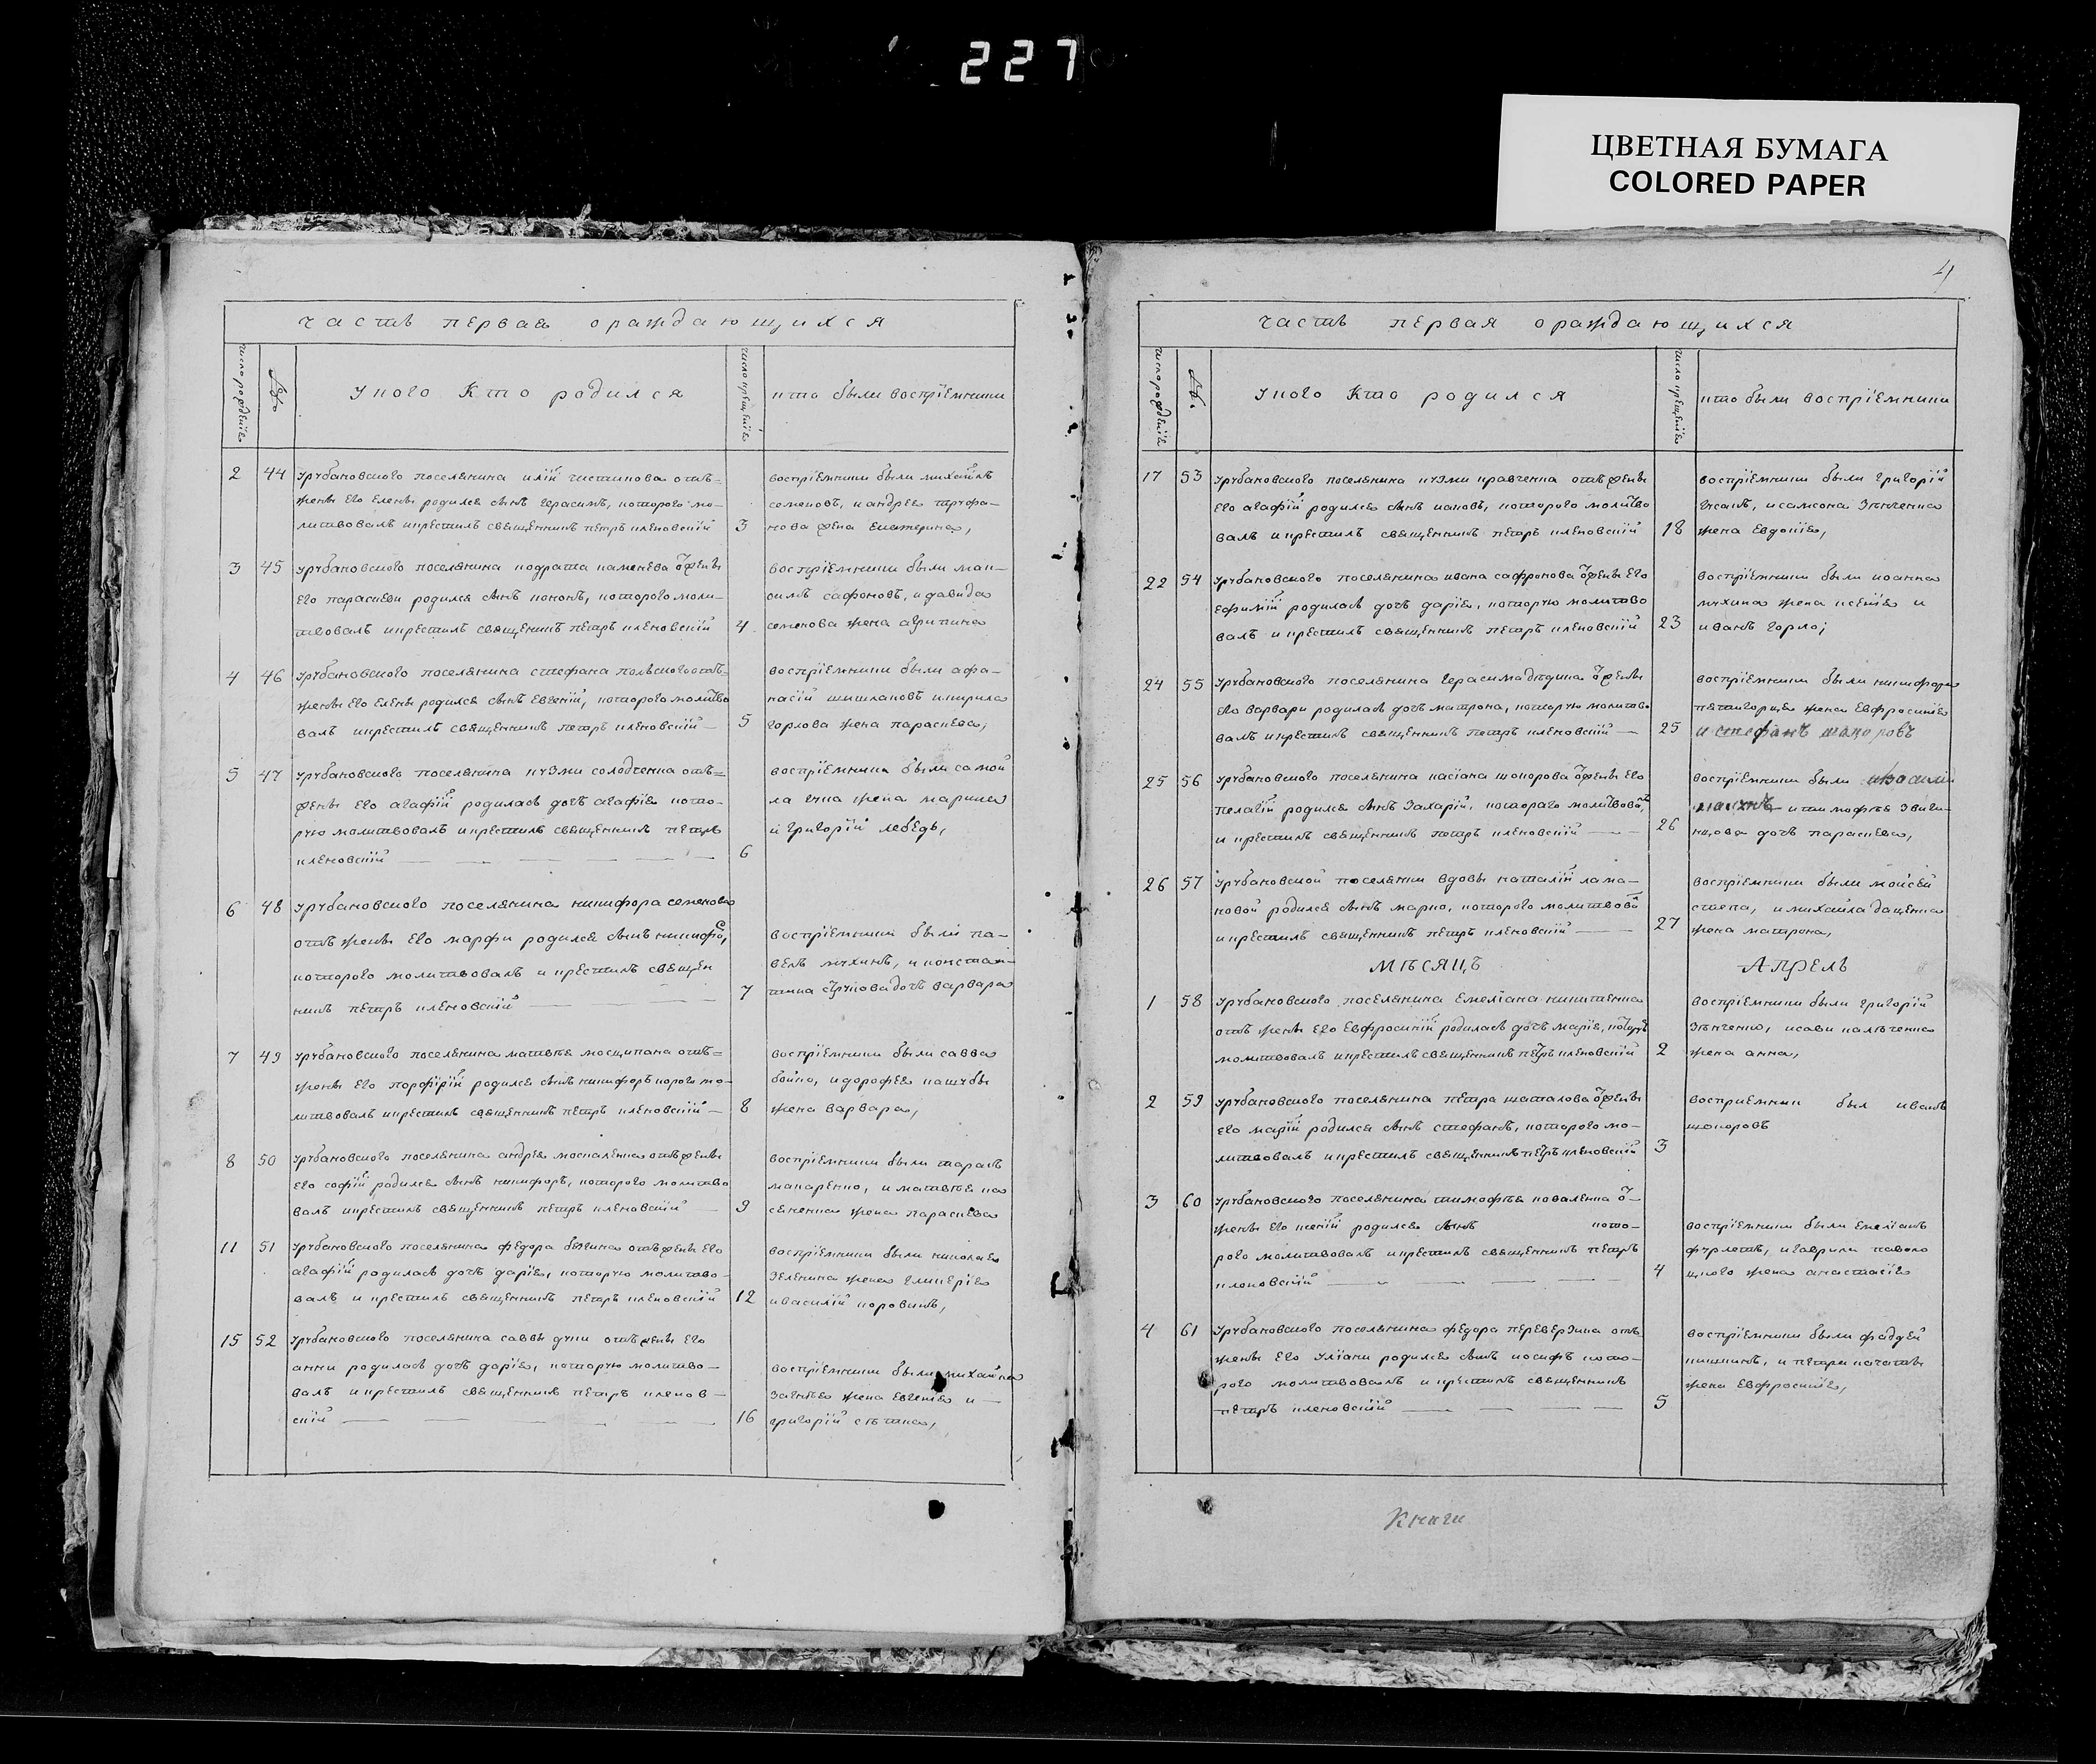 227
ЦВЕТНАЯ БУМАГА
COLORED PAPER
часть первая ораждающихся
число рождения
№
У кого Кто родился
число крещения
кто были воспрїемники
2 44 Урубановского поселянина илїи чистикова отъ=
жены его елены родился сынъ герасимъ, которого мо-
литвовалъ и крестилъ священникъ петръ кленовскїй 3
воспрїемники были михайлъ
семеновъ, и андрея труфа-
нова жена екатерина,
3 45 Урубановского поселянина кодрата каменева ѿ жены
его параскеви родился сынъ кононъ, которого моли-
твовалъ и крестилъ священникъ петръ кленовскїй 4
воспрїемники были мак-
симъ сафоновъ, и давида
семенова жена агрипина
4 46 Урубановского поселянина стефана польского отъ=
жены его елены родился сынъ евгенїй, которого молитво
валъ и крестилъ священникъ петръ кленовскїй — 5
воспрїемники были афа-
насїй шишкановъ и кирила
горлова жена параскева,
5 47 Урубановского поселянина кузми солодченка отъ=
жены его агафїй родилась дочь агафїя кото-
рую молитвовалъ и крестилъ священникъ петръ
кленовскїй — 6
воспрїемники были самой
ла гука жена марина
и григорїй лебедь,
6 48 Урубановского поселянина никифора семенова
отъ жены его марфи родился сынъ никифоръ,
которого молитвовалъ и крестилъ священ
никъ петръ кленовскїй — 7
воспрїемники были па-
велъ мухинъ, и констан-
тина струкова дочь варвара
7 49 Урубановского поселянина матвѣя москипана отъ=
жены его порфирїй родился сынъ никифоръ корого мо-
литвовалъ и крестилъ священникъ петръ кленовскїй — 8
воспрїемники были савва
бойко, и дорофея кашубы
жена варвара,
8 50 Урубановского поселянина андрея москаленка отъ жены
его софїй родился сынъ никифоръ, которого молитво
валъ и крестилъ священникъ петръ кленовскїй — 9
воспрїемники были тарасъ
макаренко, и матвѣя ко
сененка жена параскева
11 51 Урубановского поселянина федора отъ жены его
агафїй родилась дочь дарїя, которую молитво-
валъ и крестилъ священникъ петръ кленовскїй 12
воспрїемники были николая
зеленина жена гликерїя
и василїй коровинъ,
15 52 Урубановского поселянина саввы дуки отъ жены его
анни родилась дочь дарїя, которую молитво-
валъ и крестилъ священникъ петръ кленов-
скїй — 16
воспрїемники были михайла
жена евгенїя и —
григорїй сѣтика,
4
часть первая ораждающихся
число рожденїя
№
У кого Кто родился
число крещенїя
кто были воспрїемники
17 53 Урубановского поселянина кузми кравченка отъ жены
его агафїй родился сынъ иаковъ, которого молитво
валъ и крестилъ священникъ петръ кленовскїй 18
воспрїемники были григорїй
и самсона зѣнченка
жена евдокїя,
22 54 Урубановского поселянина ивана сафронова ѿ жены его
ефимїй родилась дочь дарїя, которую молитво
валъ и крестилъ священникъ петръ кленовскїй 23
воспрїемники были иоанна
мухина жена ксенїя и
иванъ горло;
24 55 Урубановского поселянина герасима дѣдика ѿ жены
его варвари родилась дочь матрона, которую молитво
валъ и крестилъ священникъ петръ кленовскїй — 25
воспрїемники были никифора
пятигорца жена евфросинїя
и стефанъ шапоровъ
25 56 Урубановского поселянина касїана шопорова ѿ жены его
пелагїй родился сынъ захарїй, которого молитвовалъ
и крестилъ священникъ петръ кленовскїй — 26
воспрїемники были василїй
и тимофѣя звяги-
нцова дочь параскева,
26 57 Урубановской поселянки вдовы наталїй лама-
новой родился сынъ марко, которого молитвовалъ
и крестилъ священникъ петръ кленовскїй — 27
воспрїемники были моисей
скепа, и михайла даценка
жена матрона,
МѢСЯЦЪ АПРЕЛЬ
1 58 Урубановского поселянина емелїана никитенка
отъ жены его евфросинїй родилась дочь марїя, которую
молитвовалъ и крестилъ священникъ петръ кленовскїй 2
воспрїемники были григорїй
зѣнченко, и сави калѣченка
жена анна,
2 59 Урубановского поселянина петра шаталова ѿ жены
его марїй родился сынъ стефанъ, которого мо-
литвовалъ и крестилъ священникъ петръ кленовскїй 3
восприемник был иванъ
шопоровъ
3 60 Урубановского поселянина тимофѣя коваленка ѿ-
жены его ксенїй родился сынъ кото-
рого молитвовалъ и крестилъ священникъ петръ
кленовскїй — 4
воспрїемники были емелїанъ
фурлетъ, и гаврили павло
цкого жена анастасїя
4 61 Урубановского поселянина федора переверзина отъ
жены его улїани родился сынъ иосифъ кото-
рого молитвовалъ и крестилъ священникъ
петръ кленовскїй — 5
воспрїемники были фаддей
кишкинъ, и петра
жена евфросинїя,
Книги